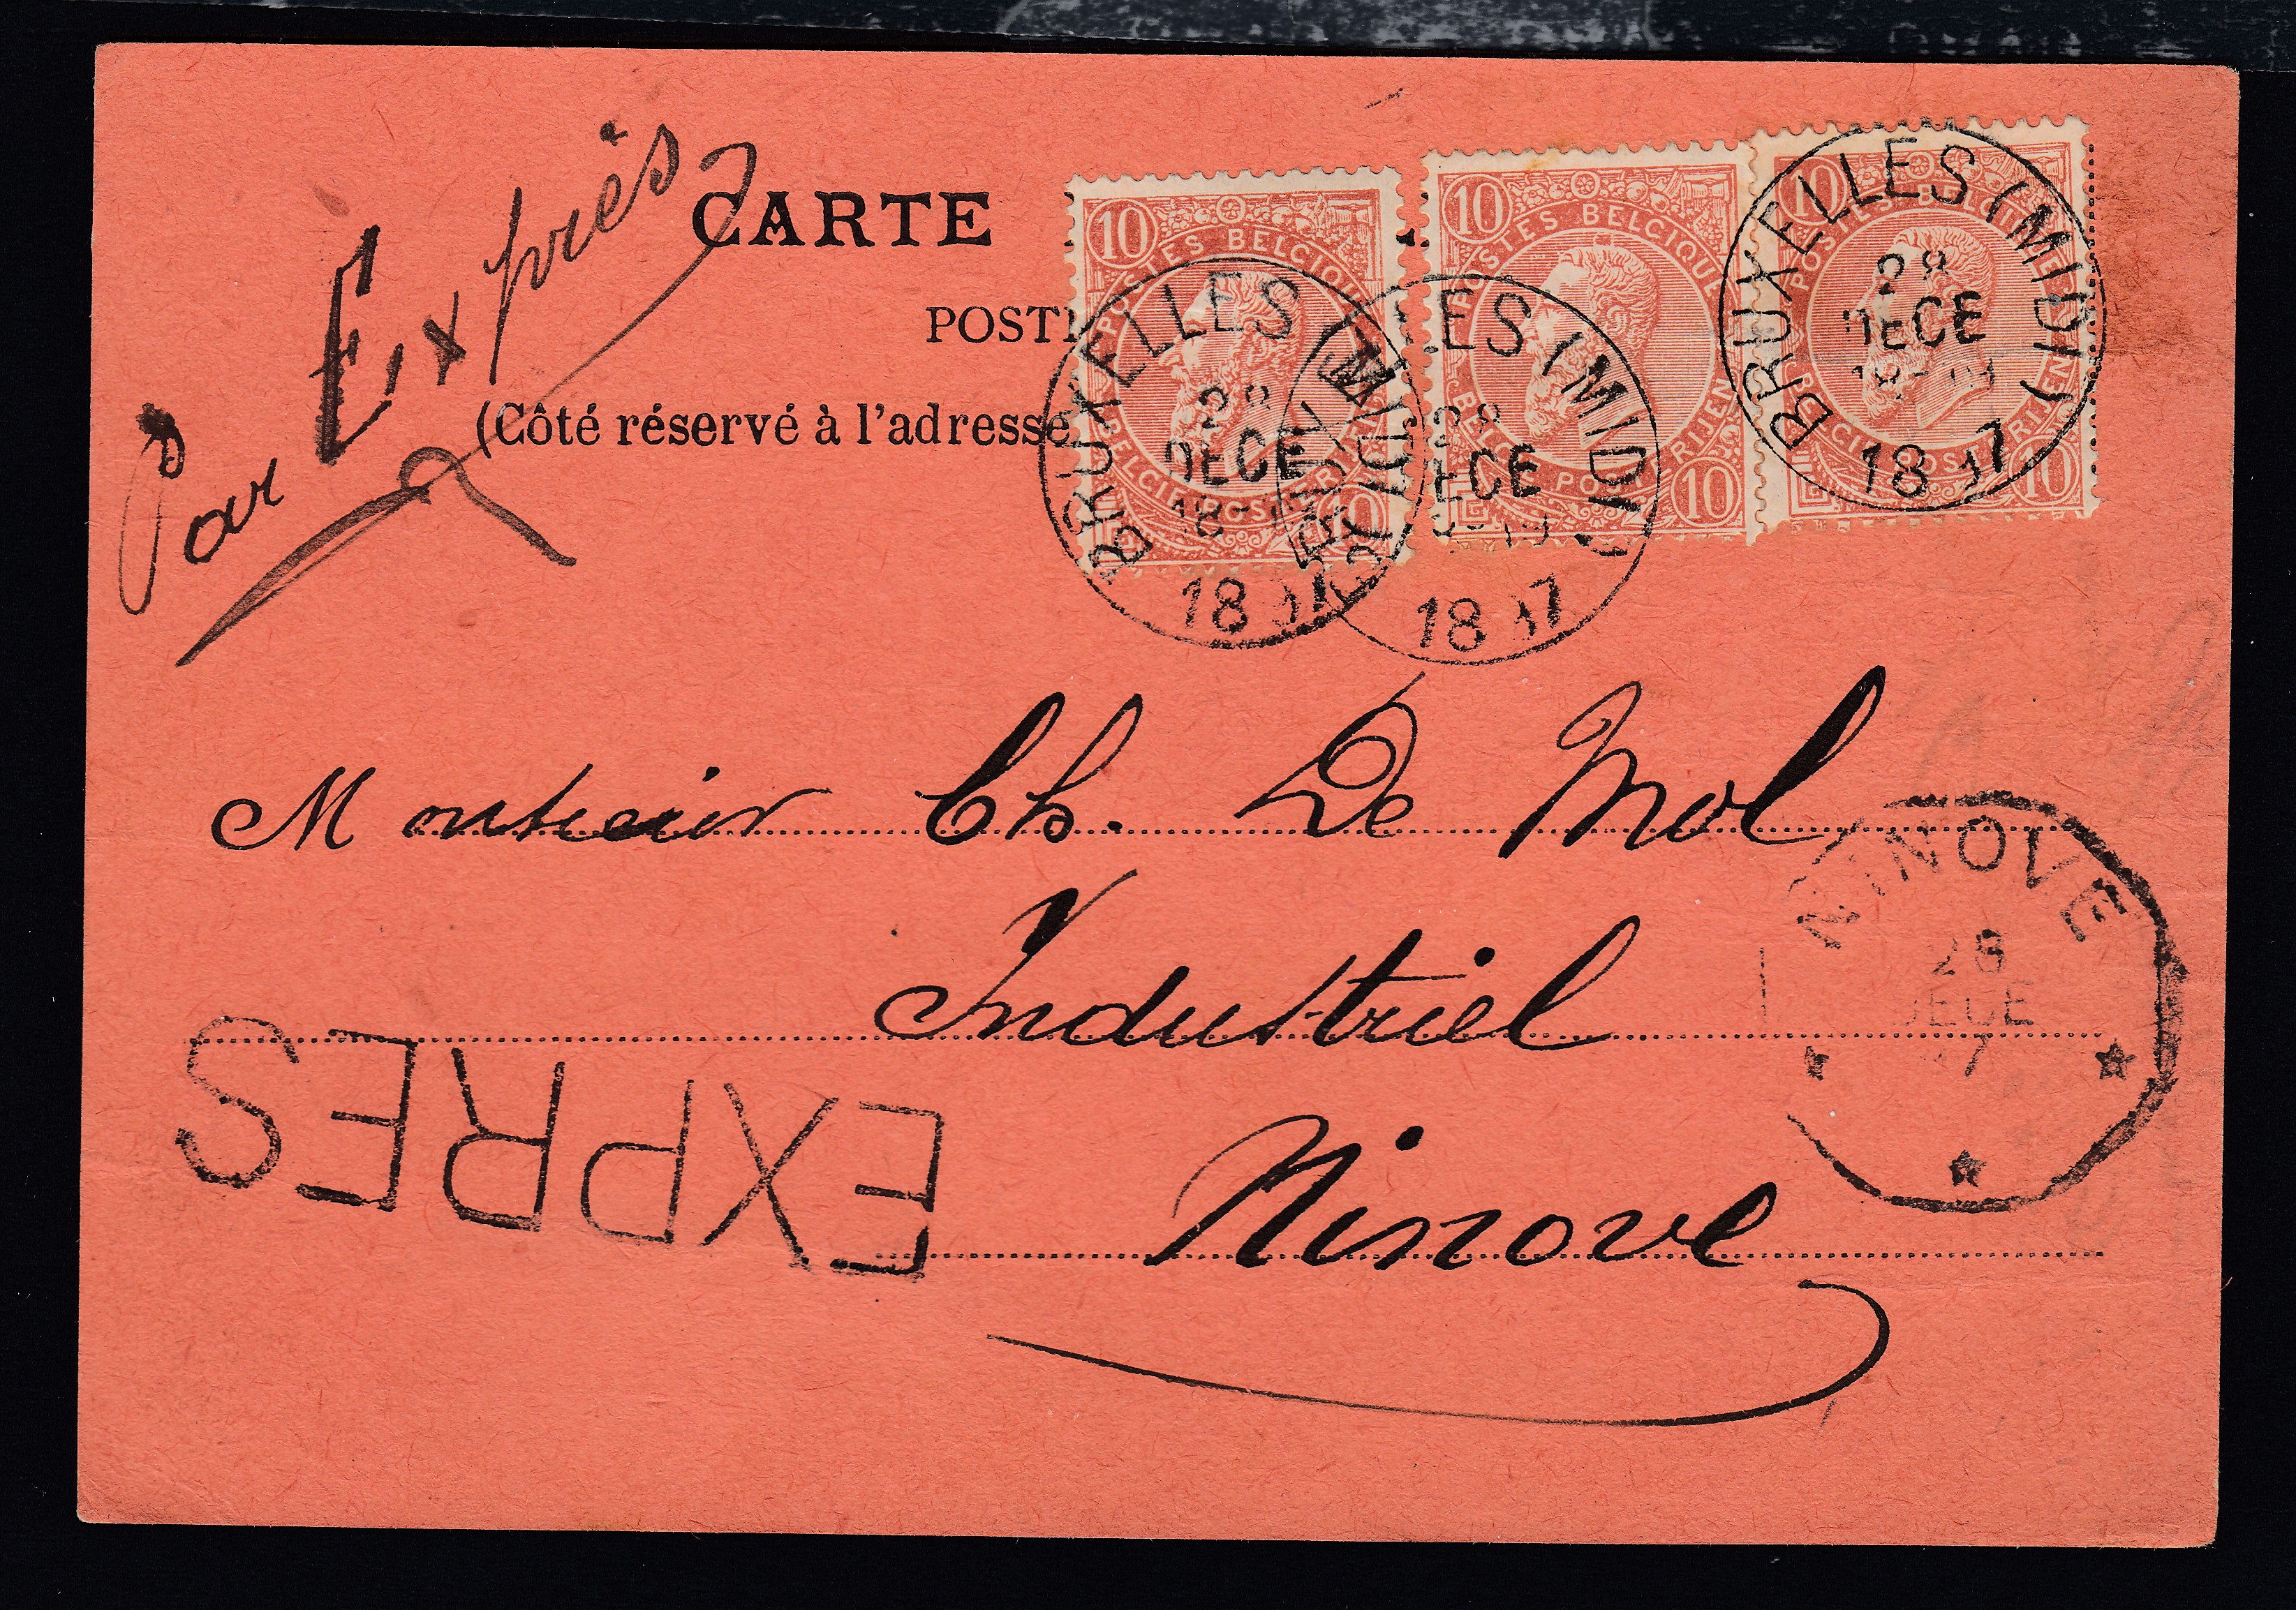 Par Exprès
CARTE
POST
(Côté réservé à l'adresse
10
POSTES BELGIQUE
10
10
POSTES BELGIQUE
10
10
10
BRUXELLES (MIDI)
28
DECE
1897
BRUXELLES (MIDI)
28
DECE
1897
BRUXELLES (MIDI)
28
DECE
1897
Monsieur Ch. De Mol
Industriel
Ninove
NINOVE
28
DECE
EXPRES